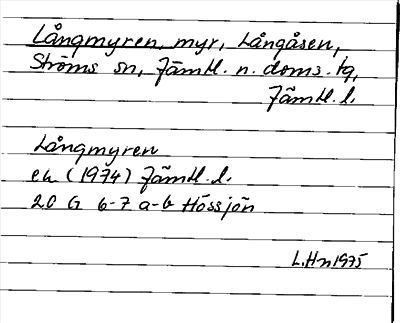 Långmyren, myr, Långåsen,
Ströms sn, Jämtl. n. doms. tg,
Jämtl. l.
Långmyren
ek (1974) Jämtl. l.
20 G 6-7 a-b Hössjön
L.Hn 1975